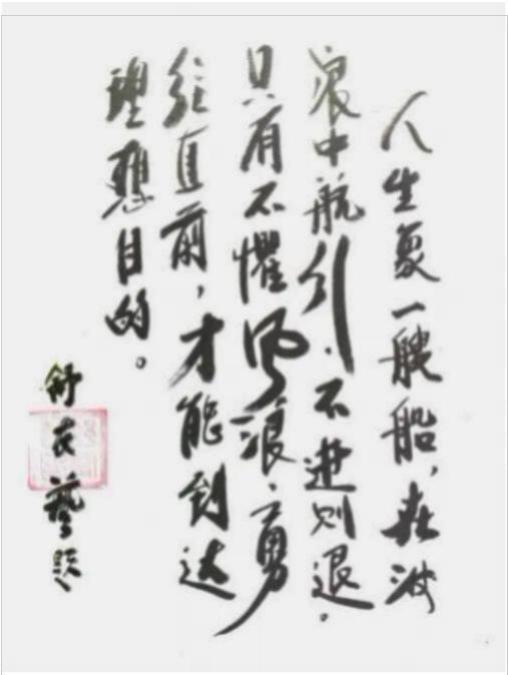 人生象一艘船，在波
浪中航行.不进则退.
只有不惧风浪.勇
往直前，才能到达
理想目的。
舒衣艺题